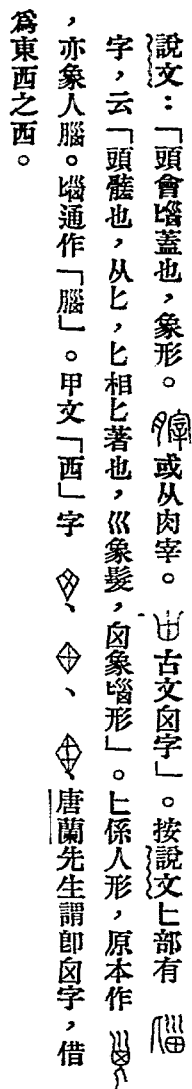 說文：「頭會𡿺蓋也，象形。或从肉宰。古文囟字」。按說文匕部有
字，云「頭髓也，从匕，匕相匕著也，巛象髮，囟象𡿺形」。匕係人形，原本作
，亦象人腦。𡿺通作「腦」。甲文「西」字、、，唐蘭先生謂即囟字，借
爲東西之西。